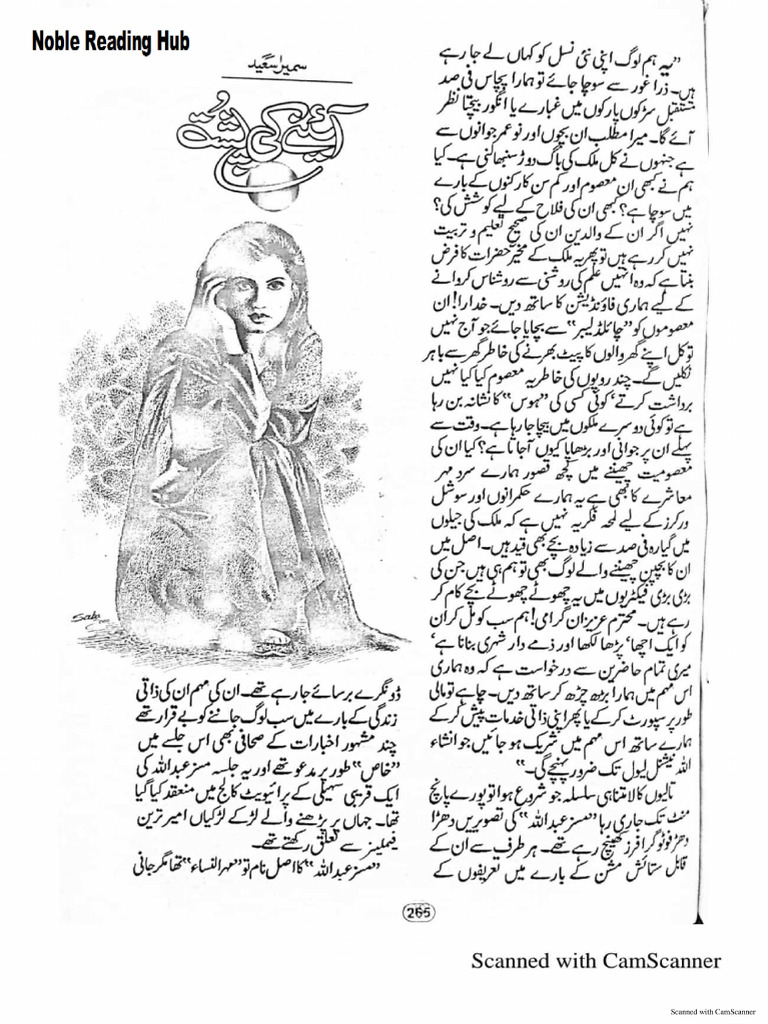 Noble Reading Hub
سمیرا سعید
آئینے کی پشت
”یہ ہم لوگ اپنی نئی نسل کو کہاں لے جا رہے
ہیں۔ ذرا غور سے سوچا جائے تو ہمارا پچاس فی صد
مستقبل سڑکوں پارکوں میں غبارے یا انگور بیچتا نظر
آئے گا۔ میرا مطلب ان بچوں اور نو عمر جوانوں سے
ہے جنہوں نے کل ملک کی باگ دوڑ سنبھالنی ہے۔ کیا
ہم نے کبھی ان معصوم اور کم سن کارکنوں کے بارے
میں سوچا ہے؟ کبھی ان کی فلاح کے لیے کوشش کی؟
نہیں اگر ان کے والدین ان کی صحیح تعلیم و تربیت
نہیں کر رہے ہیں تو پھر یہ ملک کے مخیر حضرات کا فرض
بنتا ہے کہ وہ انہیں علم کی روشنی سے روشناس کروانے
کے لیے ہماری فاؤنڈیشن کا ساتھ دیں۔ خدارا! ان
معصوموں کو ”چائلڈ لیبر“ سے بچایا جائے جو آج نہیں
تو کل اپنے گھر والوں کا پیٹ بھرنے کی خاطر گھر سے باہر
نکلیں گے۔ چند روپوں کی خاطر یہ معصوم کیا کیا نہیں
برداشت کرتے‘ کوئی کسی کی ”ہوس“ کا نشانہ بن رہا
ہے تو کوئی دوسرے ملکوں میں بیچا جا رہا ہے۔ وقت سے
پہلے ان پر جوانی اور بڑھاپا کیوں آ جاتا ہے؟ کیا ان کی
معصومیت چھیننے میں کچھ قصور ہمارے سرد مہر
معاشرے کا بھی ہے یہ ہمارے حکمرانوں اور سوشل
ورکرز کے لیے لمحہ فکریہ نہیں ہے کہ ملک کی جیلوں
میں گیارہ فی صد سے زیادہ بچے بھی قید ہیں۔ اصل میں
ان کا بچپن چھیننے والے لوگ بھی تو ہم ہی ہیں جن کی
بڑی بڑی فیکٹریوں میں یہ چھوٹے چھوٹے بچے کام کر
رہے ہیں۔ محترم عزیزان گرامی! ہم سب کو مل کر ان
کو ایک اچھا‘ پڑھا لکھا اور ذمے دار شہری بنانا ہے‘
میری تمام حاضرین سے درخواست ہے کہ وہ ہماری
اس مہم میں ہمارا بڑھ چڑھ کر ساتھ دیں۔ چاہے تو مالی
طور پر سپورٹ کر کے یا پھر اپنی ذاتی خدمات پیش کر کے
ہمارے ساتھ اس مہم میں شریک ہو جائیں جو انشاء
اللہ نیشنل لیول تک ضرور پہنچے گی۔“
تالیوں کا لامتناہی سلسلہ جو شروع ہوا تو پورے پانچ
منٹ تک جاری رہا ”مسز عبداللہ“ کی تصویریں دھڑا
دھڑ فوٹو گرافرز کھینچ رہے تھے۔ ہر طرف سے ان کے
قابل ستائش مشن کے بارے میں تعریفوں کے
ڈونگرے برسائے جا رہے تھے۔ ان کی مہم ان کی ذاتی
زندگی کے بارے میں سب لوگ جاننے کو بے قرار تھے
چند مشہور اخبارات کے صحافی بھی اس جلسے میں
”خاص“ طور پر مدعو تھے اور یہ جلسہ مسز عبداللہ کی
ایک قریبی سہیلی کے پرائیویٹ کالج میں منعقد کیا گیا
تھا۔ جہاں پر پڑھنے والے لڑکے لڑکیاں امیر ترین
فیملیز سے تعلق رکھتے تھے۔
”مسز عبداللہ“ کا اصل نام تو ”مہر النساء“ تھا مگر جانی
265
Scanned with CamScanner
Scanned with CamScanner